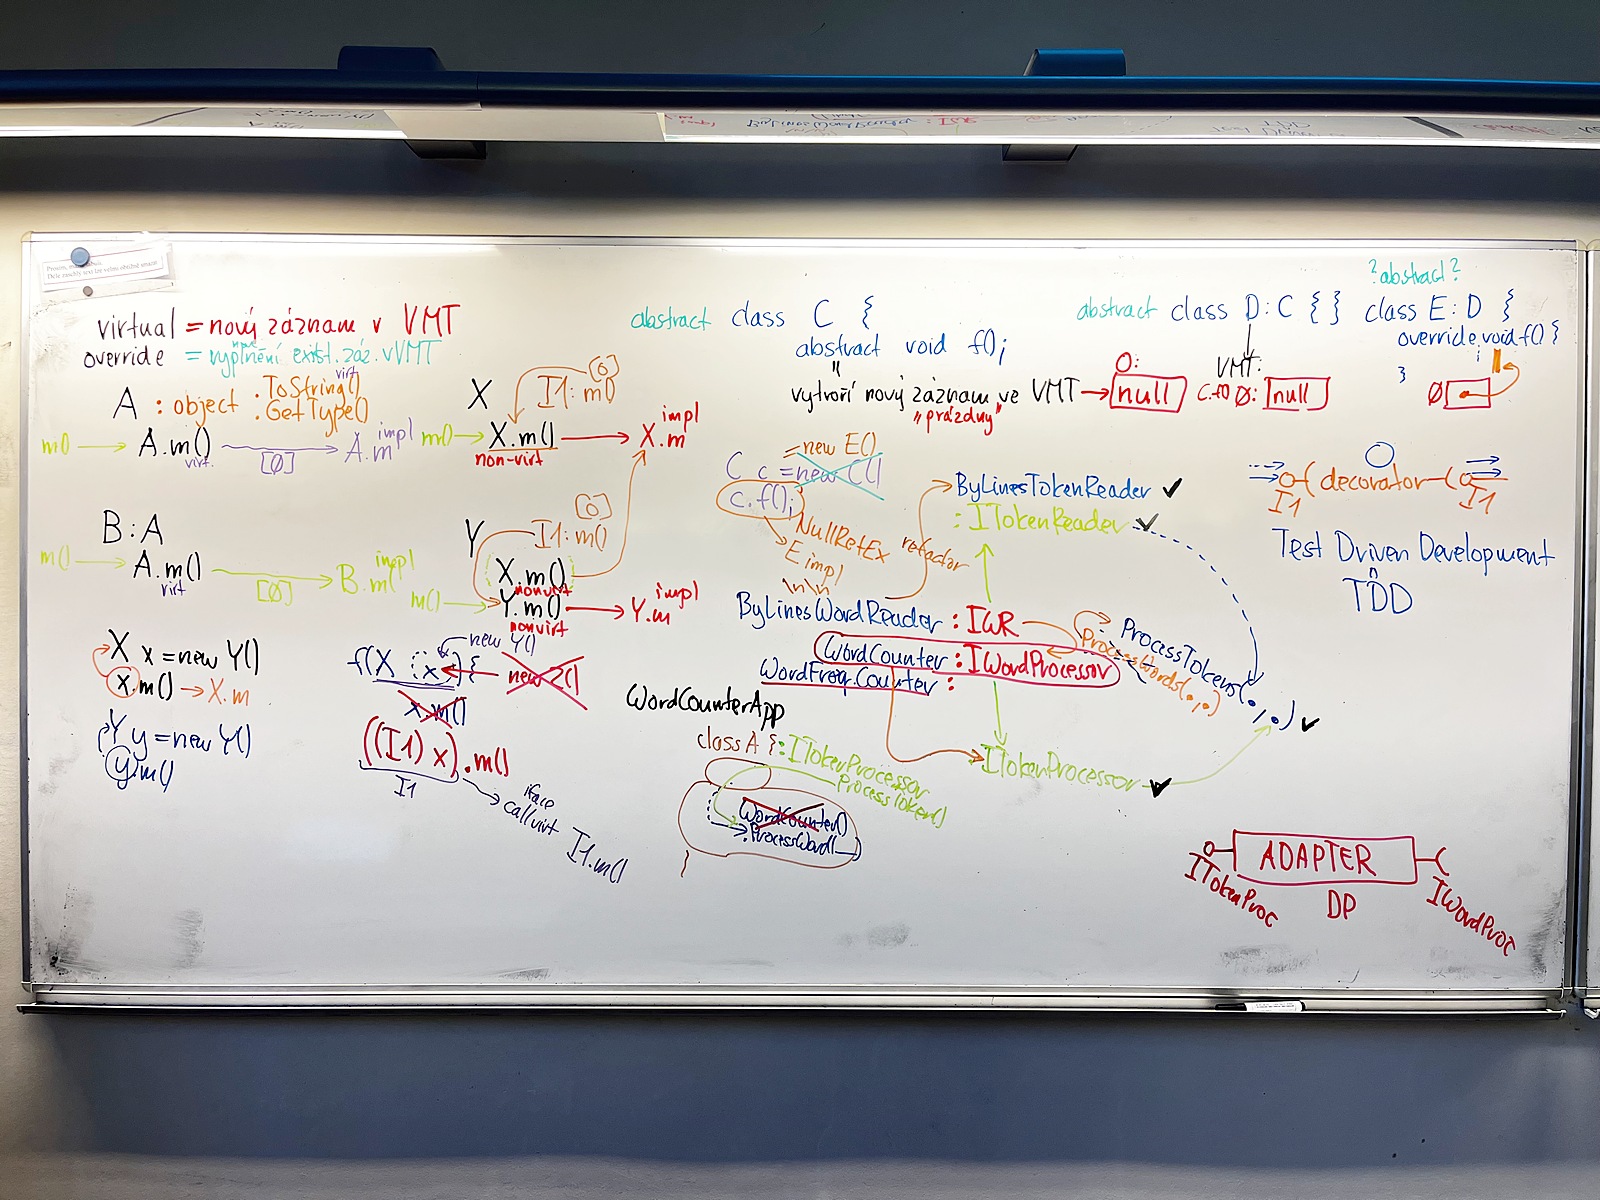 virtual = nový záznam v VMT
override = nové vyplnění exist. záz. v VMT
A : object .ToString() virt
.GetType()
m() → A.m() virt. [Ø] → A.m impl
B : A
m() → A.m() virt [Ø] → B.m impl
X I1: m() [0]
m() → X.m() → X.m impl
non-virt
Y I1: m() [0]
X.m()
nonvirt
m() → Y.m() → Y.m impl
nonvirt
X x = new Y()
x.m() → X.m
Y y = new Y()
y.m()
new Y()
f(X x) { new Z()
x.m()
((I1) x).m()
I1
iface
callvirt I1.m()
abstract class C {
abstract void f();
"
vytvoří nový záznam ve VMT → null
"prázdný"
0:
abstract class D : C { }
VMT:
C.f() Ø: null
? abstract ?
class E : D {
override void f() {
;
}
Ø
= new E()
C c = new C()
c.f();
NullRefEx
E impl
\n\n
refactor
ByLinesTokenReader ✓
: ITokenReader ✓
ByLinesWordReader : IWR
WordCounter : IWordProcessor
WordFreq.Counter :
ProcessTokens(.,.) ✓
ProcessWords(.,.)
ITokenProcessor ✓
WordCounterApp
class A { : ITokenProcessor
ProcessToken()
WordCounter()
.ProcessWord( )
}
I1 ( decorator ( I1
Test Driven Development
TDD
ADAPTER
DP
ITokenProc
IWordProc